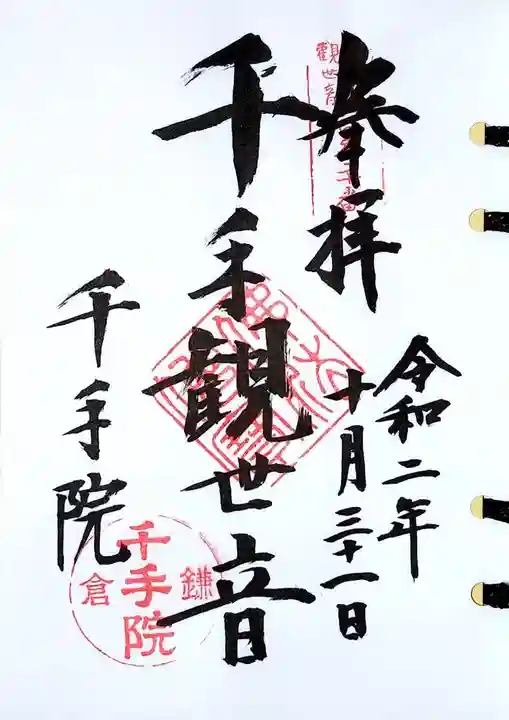 奉拝
令和二年
十月三十一日
千手観世音
千手院
觀世音
鎌倉
千手院